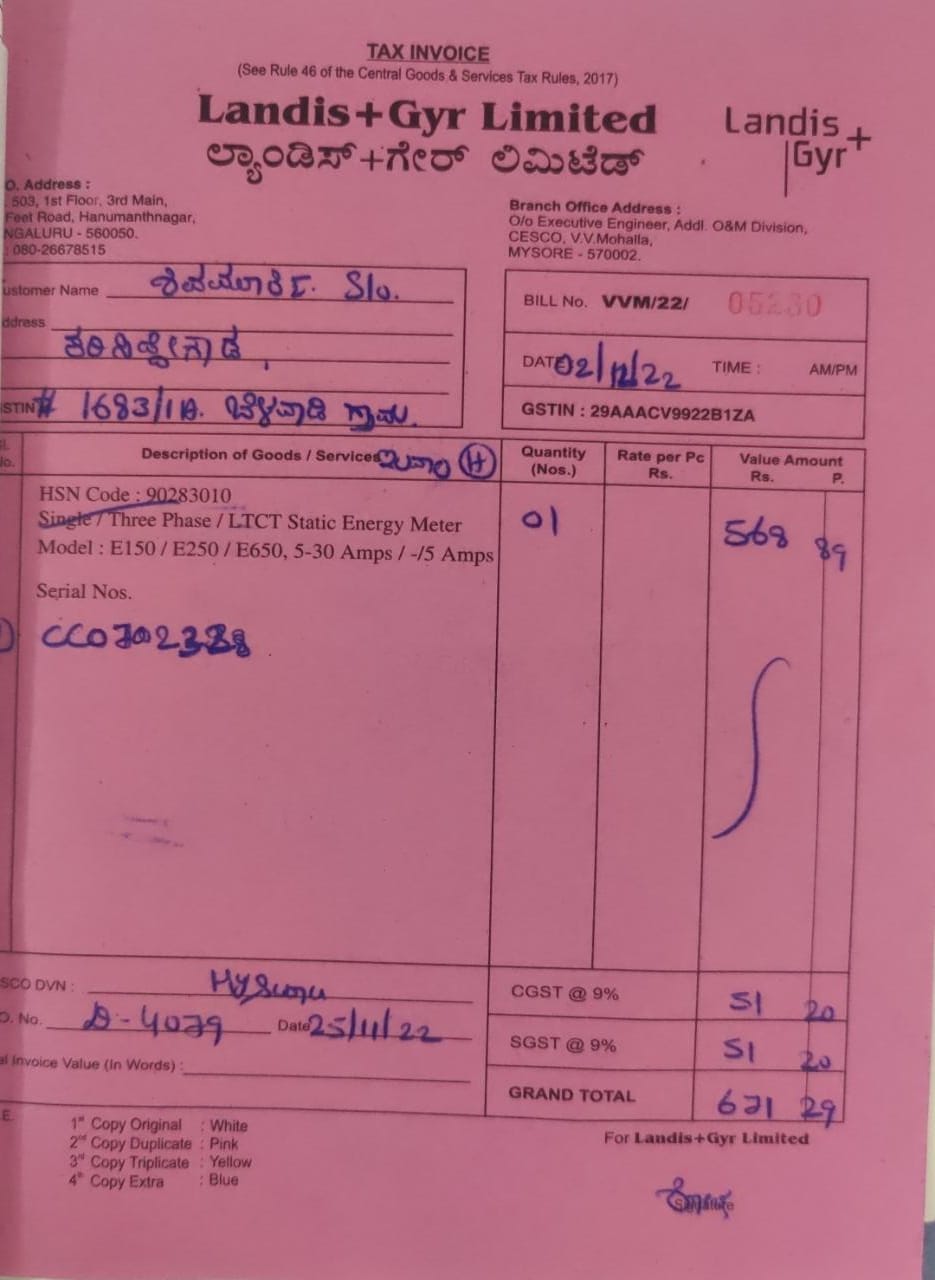 TAX INVOICE
(See Rule 46 of the Central Goods & Services Tax Rules, 2017)
Landis+Gyr Limited
ಲ್ಯಾಂಡಿಸ್+ಗೇರ್ ಲಿಮಿಟೆಡ್
Landis
Gyr+
O. Address :
503, 1st Floor, 3rd Main,
Feet Road, Hanumanthnagar,
NGALURU - 560050.
: 080-26678515
Branch Office Address :
O/o Executive Engineer, Addl. O&M Division,
CESCO, V.V.Mohalla,
MYSORE - 570002.
ustomer Name ಶಿವಮೂರ್ತಿ. S/o.
ddress
ಕರಿಸಿದ್ದೇಗೌಡ,
STIN # 1683/1A. ಬೆಳವಾಡಿ ಗ್ರಾಮ.
BILL No. VVM/22/ 05230
DATE 02/12/22 TIME : AM/PM
GSTIN : 29AAACV9922B1ZA
l. No. Description of Goods / Services ಇಲವಾಲ (H) Quantity (Nos.) Rate per Pc Rs. Value Amount Rs. P.
HSN Code : 90283010
Single / Three Phase / LTCT Static Energy Meter 01 568 89
Model : E150 / E250 / E650, 5-30 Amps / -/5 Amps
Serial Nos.
CC0702388
SCO DVN : Mysuru
O. No. D-4079 Date 25/11/22
al Invoice Value (In Words) :
CGST @ 9% 51 20
SGST @ 9% 51 20
GRAND TOTAL 671 29
E.
1st Copy Original : White
2nd Copy Duplicate : Pink
3rd Copy Triplicate : Yellow
4th Copy Extra : Blue
For Landis+Gyr Limited